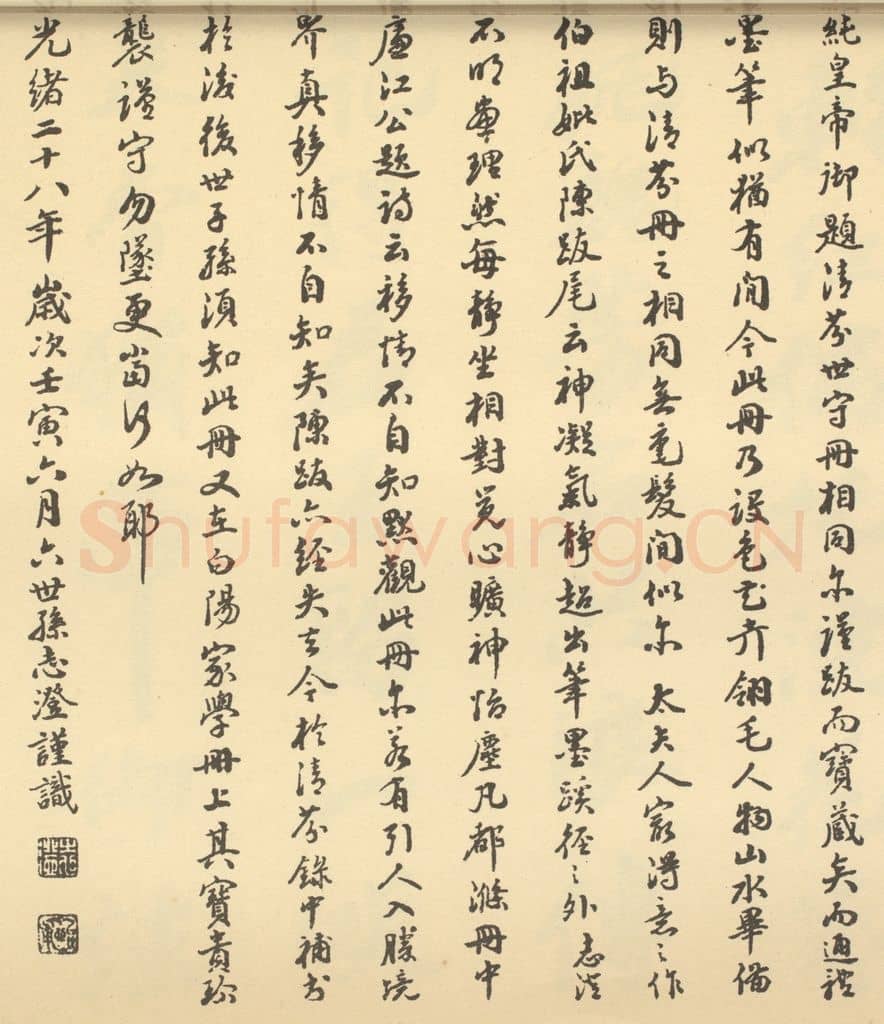 純皇帝御題清芬世守冊相同尔謹跋而寶藏矣而通體
墨筆似猶有間今此冊乃設色花卉翎毛人物山水畢備
則与清芬冊之相同無毫髮間似尔太夫人最得意之作
伯祖妣氏陳跋尾云神凝氣静超出筆墨蹊徑之外志澄
不明畫理然每靜坐相對覺心曠神怡塵凡都滌冊中
廉江公題詩云移情不自知默觀此冊尔若有引人入勝境
界真移情不自知矣陳跋亦經失去今於清芬錄中補書
於後後世子孫須知此冊又在白陽家學冊上其寶貴珍
襲謹守勿墜更當何如耶
光緒二十八年歲次壬寅六月六世孫志澄謹識
Shufawang.CN